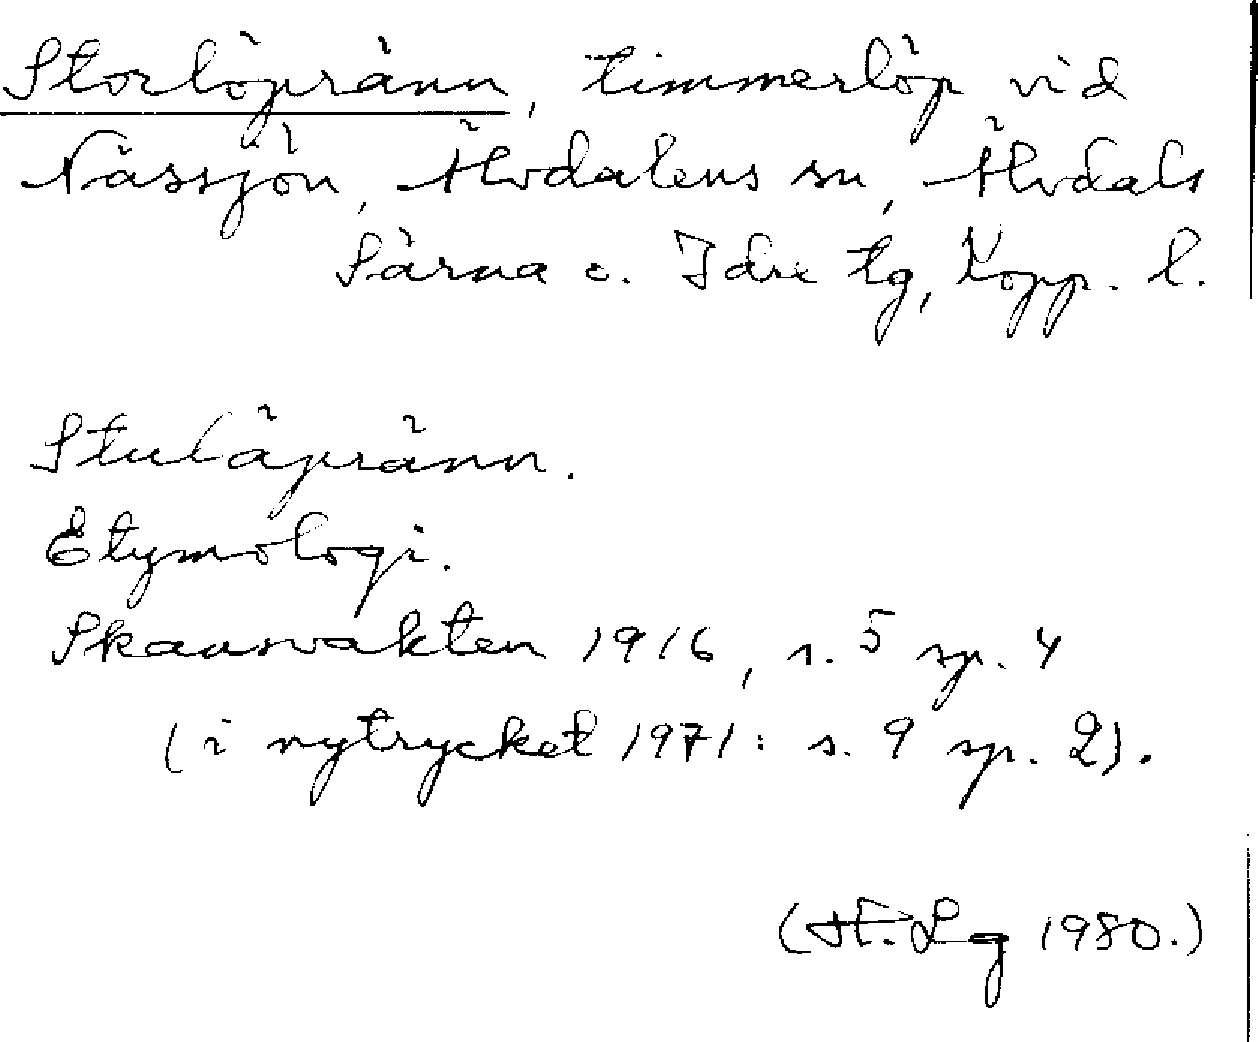 Storlöpränn, timmerlöp vid
Nässjön, Älvdalens sn, Älvdals
Särna o. Idre tg, Kopp. l.
Stuläpränn.
Etymologi.
Skansvakten 1916, s. 5 sp. 4
(i nytrycket 1971: s. 9 sp. 2).
(H. Lg 1980.)